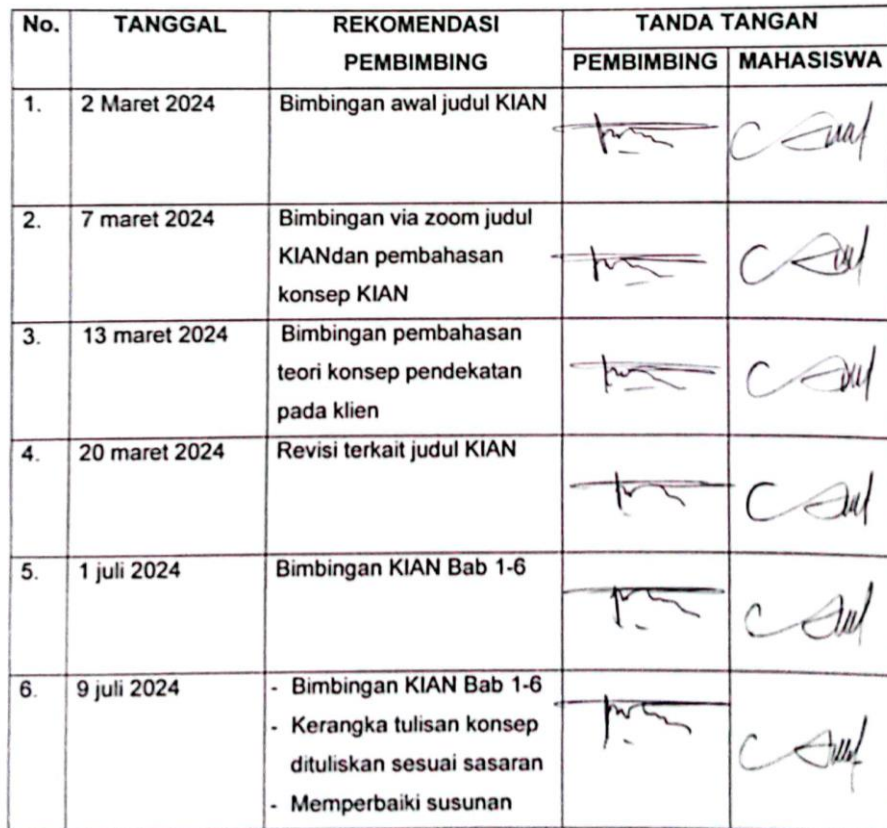 No. TANGGAL REKOMENDASI PEMBIMBING TANDA TANGAN
PEMBIMBING MAHASISWA
1. 2 Maret 2024 Bimbingan awal judul KIAN
2. 7 maret 2024 Bimbingan via zoom judul
KIANdan pembahasan
konsep KIAN
3. 13 maret 2024 Bimbingan pembahasan
teori konsep pendekatan
pada klien
4. 20 maret 2024 Revisi terkait judul KIAN
5. 1 juli 2024 Bimbingan KIAN Bab 1-6
6. 9 juli 2024 - Bimbingan KIAN Bab 1-6
- Kerangka tulisan konsep
dituliskan sesuai sasaran
- Memperbaiki susunan